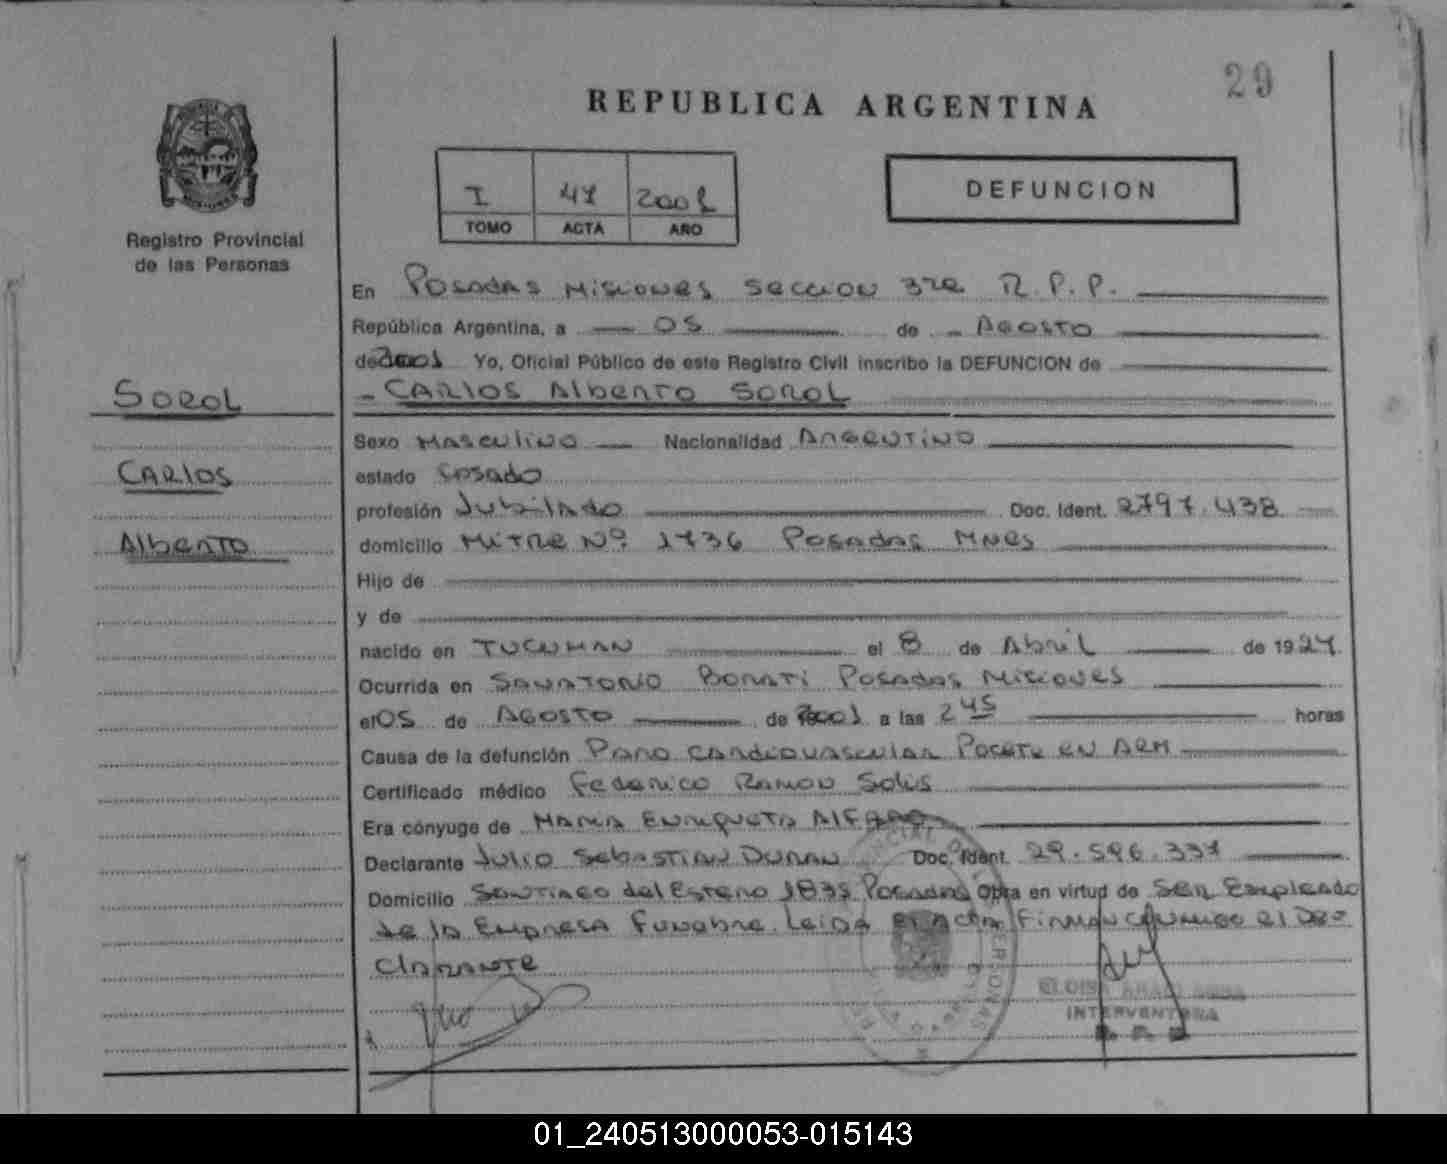 29
REPUBLICA ARGENTINA
I 47 2001
TOMO ACTA AÑO
DEFUNCION
Registro Provincial
de las Personas
SOROL
CARLOS
Alberto
En POSADAS MISIONES SECCION 3ra R.P.P.
República Argentina, a 05 de AGOSTO
de 2001 Yo, Oficial Público de este Registro Civil inscribo la DEFUNCION de
CARLOS Alberto SOROL
Sexo MASCULINO Nacionalidad ARGENTINO
estado CASADO
profesión Jubilado Doc. Ident. 2797.438
domicilio MITRE Nº 1736 POSADAS MNES
Hijo de
y de
nacido en TUCUMAN el 8 de Abril de 1927
Ocurrida en SANATORIO BORATI POSADAS MISIONES
el 05 de AGOSTO de 2001 a las 2 45 horas
Causa de la defunción PARO CARDIOVASCULAR EN ARM
Certificado médico Federico RAMON SOLIS
Era cónyuge de MARIA ENRIQUETA ALFARO
Declarante JULIO SEBASTIAN DURAN Doc. Ident. 29.596.337
Domicilio SANTIAGO del ESTERO POSADAS Obra en virtud de SER EMPLEADO
de la EMPRESA FUNEBRE. LEIDA EL ACTA FIRMAN CONMIGO el DE=
CLARANTE
INTERVENTORA
01_240513000053-015143